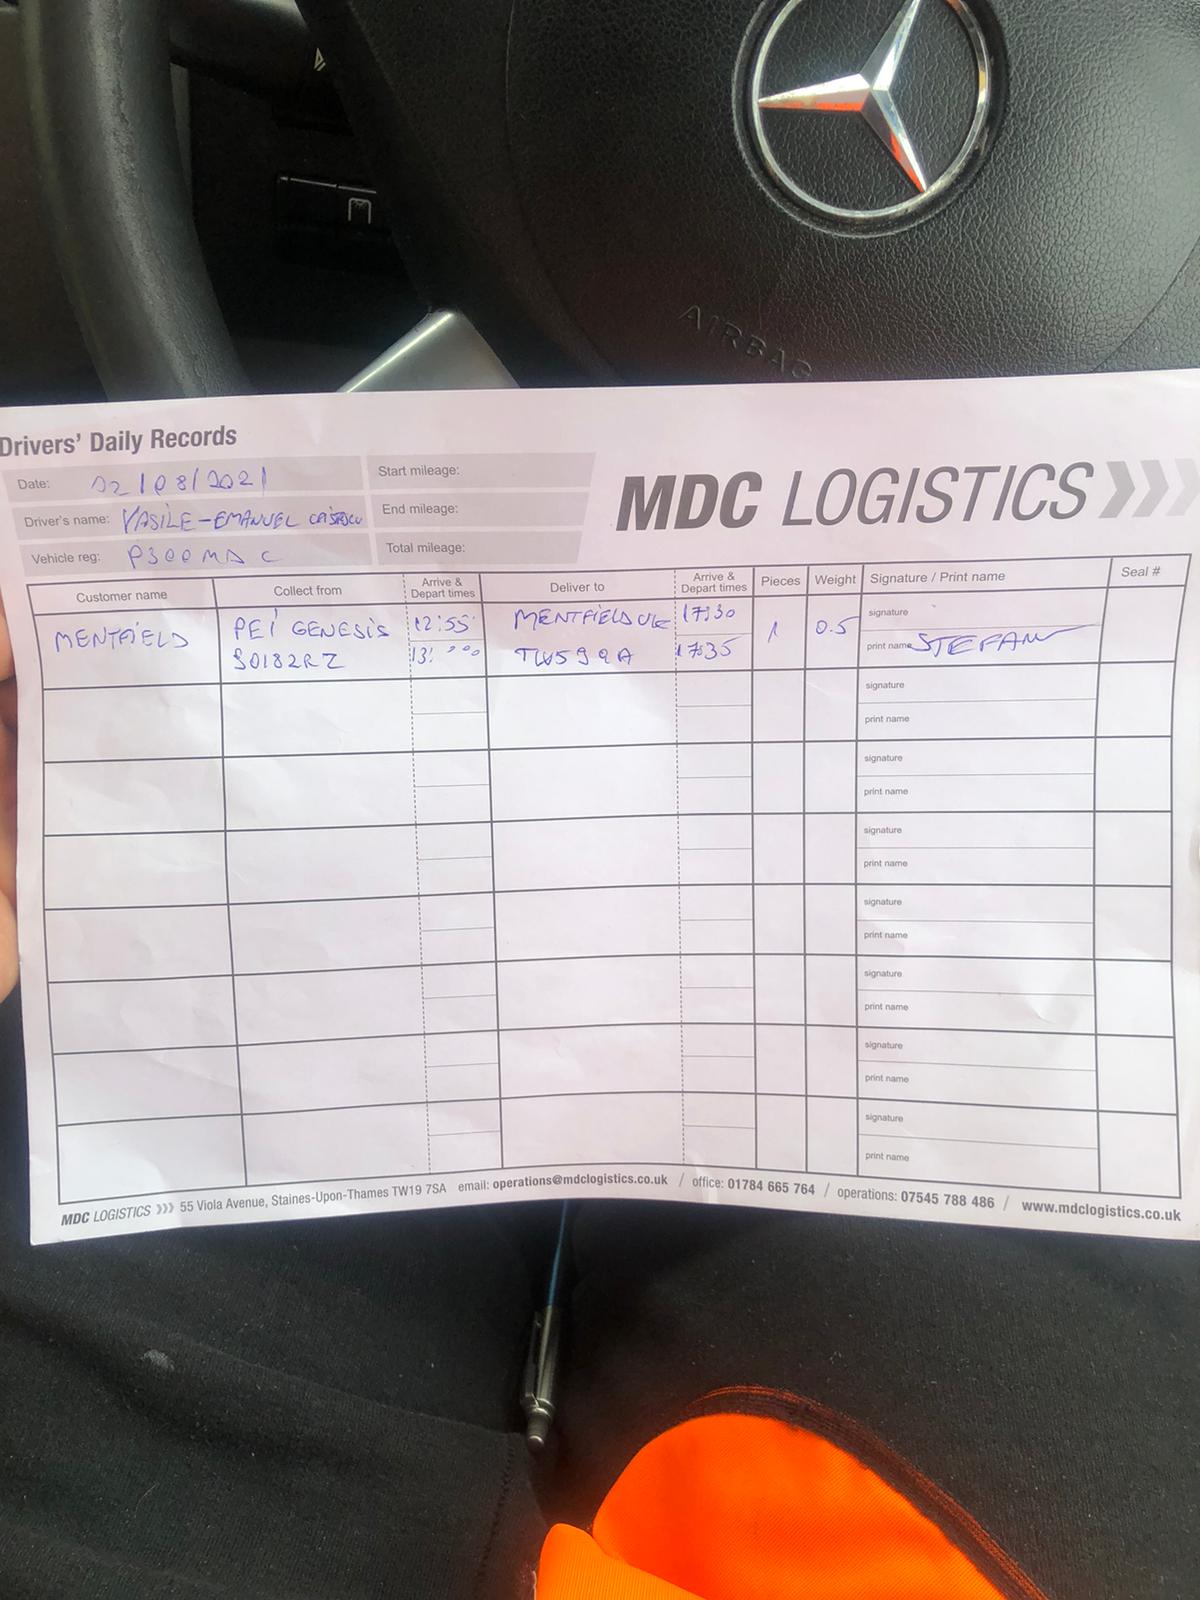 AIRBAG
Drivers' Daily Records
Date: 02/08/2021
Driver's name: VASILE-EMANUEL
Vehicle reg: P300MDC
Start mileage:
End mileage:
Total mileage:
MDC LOGISTICS
Customer name Collect from Arrive & Depart times Deliver to Arrive & Depart times Pieces Weight Signature / Print name Seal #
MENTFIELD PEI GENESIS 12:55 MENTFIELD UK 17:30 1 0.5 signature
SO182RZ 13:00 TW5 99A 17:35 print name STEFAN
signature
print name
signature
print name
signature
print name
signature
print name
signature
print name
signature
print name
signature
print name
MDC LOGISTICS >>> 55 Viola Avenue, Staines-Upon-Thames TW19 7SA email: operations@mdclogistics.co.uk / office: 01784 665 764 / operations: 07545 788 486 / www.mdclogistics.co.uk